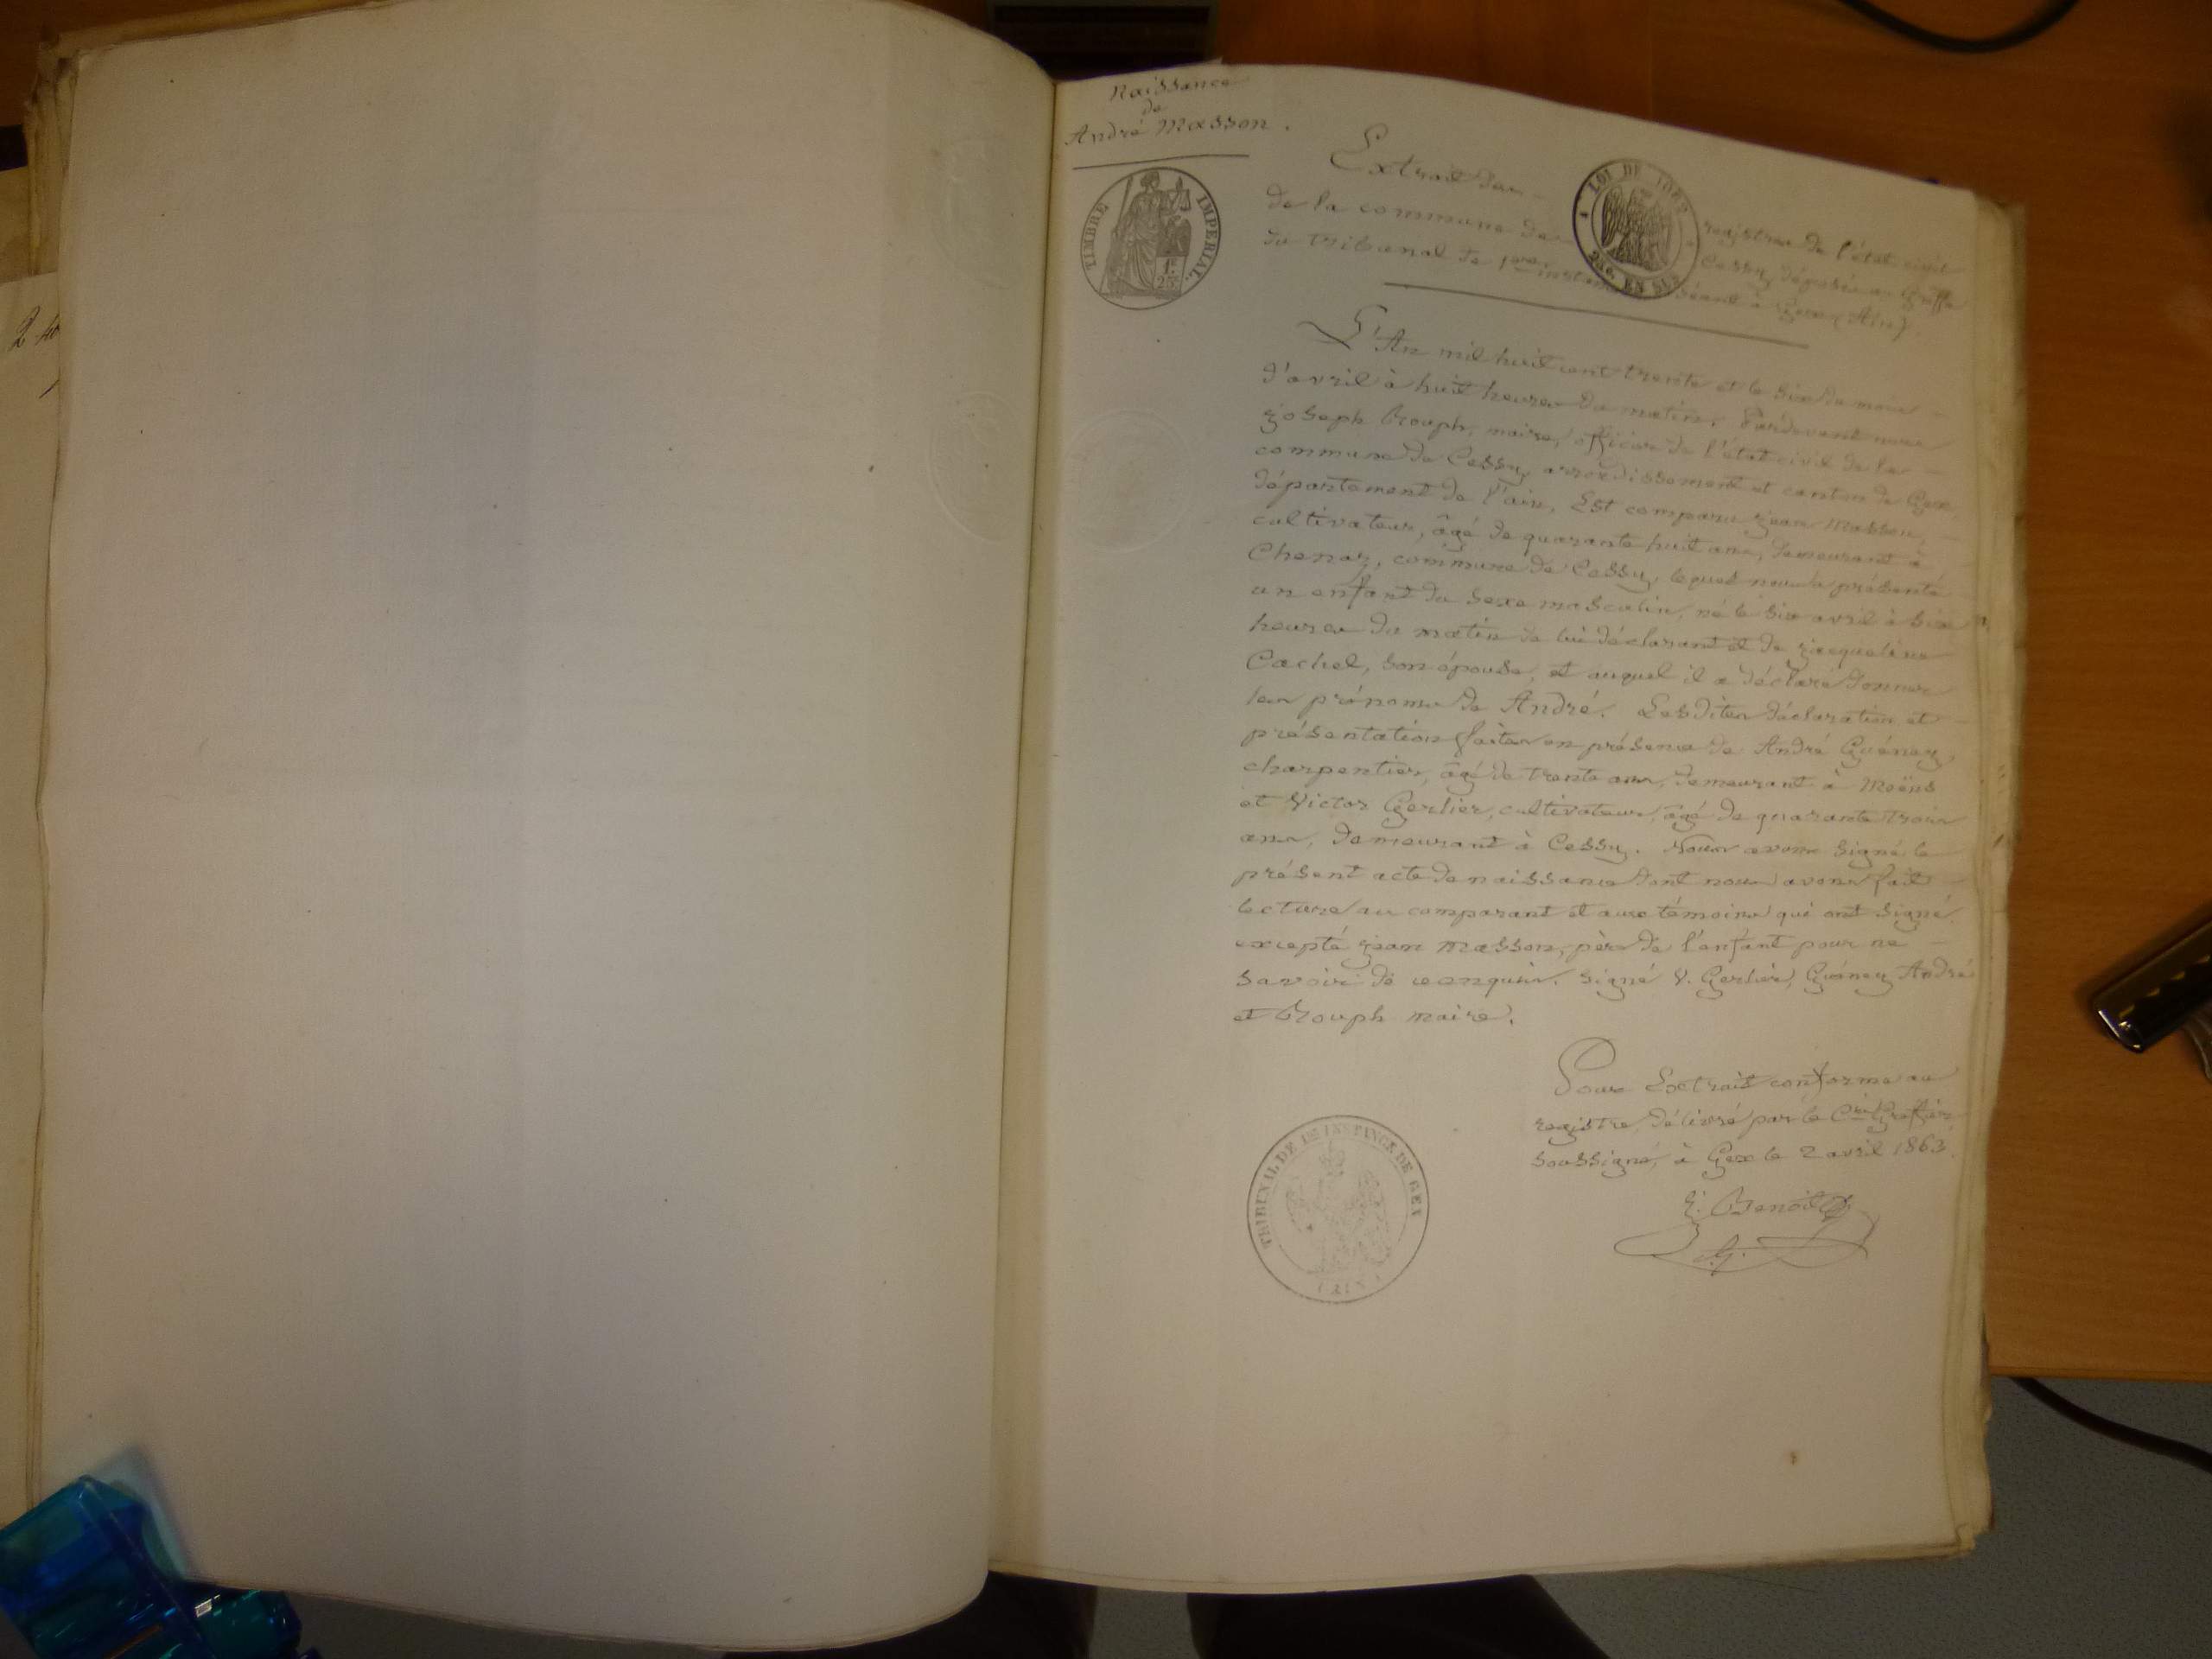 Naissance
de
André Masson.
TIMBRE IMPERIAL.
1F.
25c.
LOI DE 1862
EN SUS
Extrait des registres de l'état civil
de la commune de Cessy, déposés au Greffe
du Tribunal de 1ère instance séant à Gex (Ain)
L'An mil huit cent trente et le six du mois
d'avril à huit heures du matin, Pardevant nous
Joseph Brouph, maire, officier de l'état civil de la
commune de Cessy, arrondissement et canton de Gex,
département de l'ain, Est comparu Jean Masson,
cultivateur, âgé de quarante huit ans, demeurant à
Chenaz, commune de Cessy, lequel nous a présenté
un enfant du sexe masculin, né le six avril à six
heures du matin de lui déclarant et de Jacqueline
Cachel, son épouse, et auquel il a déclaré donner
les prénoms de André. Lesdites déclaration et
présentation faites en présence de André Guéney
charpentier, âgé de trente ans, demeurant à Moëns
et Victor Gerlier, cultivateur, âgé de quarante trois
ans, demeurant à Cessy. Nous avons signé le
présent acte de naissance dont nous avons fait
lecture au comparant et aux témoins qui ont signé
excepté Jean Masson, père de l'enfant pour ne
savoir de ce enquis. signé V. Gerlier, Guéney André
et Brouph maire.
Pour Extrait conforme au
registre, délivré par le Cis Greffier
soussigné, à Gex le 2 avril 1863.
J. Benoit
TRIBUNAL DE 1E INSTANCE DE GEX
(AIN)